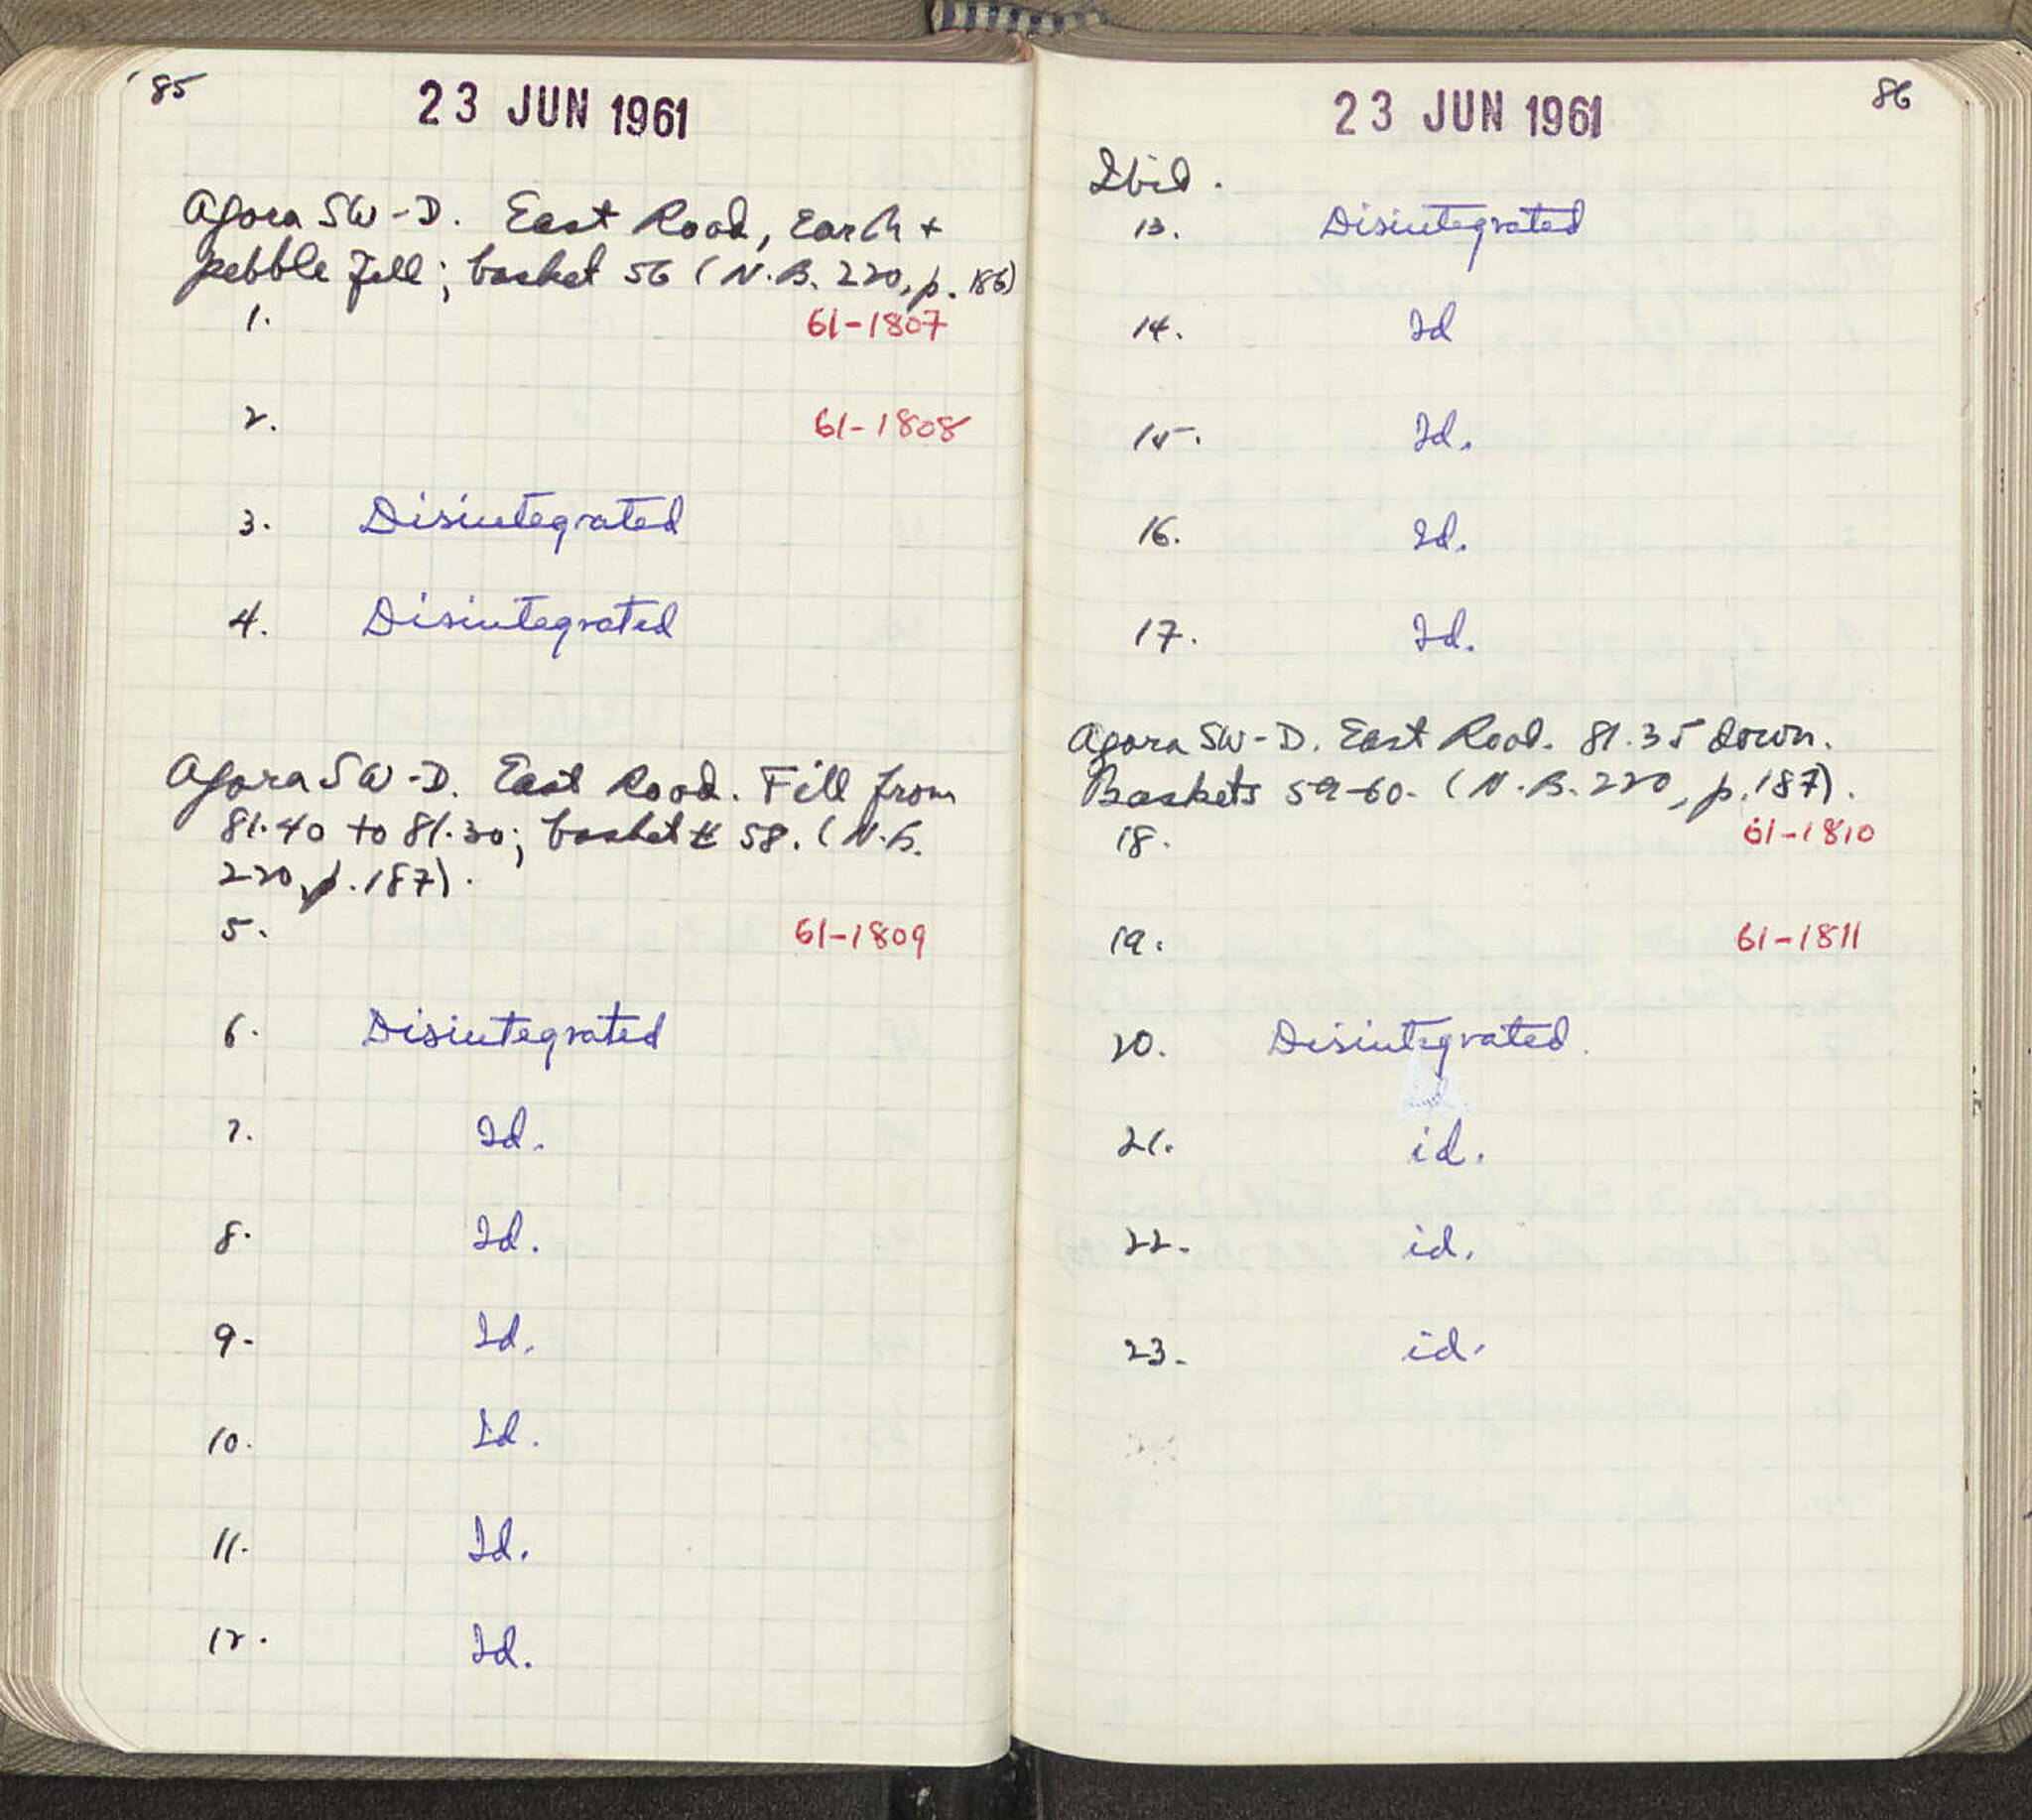 85
23 JUN 1961
Agora SW-D. East Road, Earth +
pebble fill; basket 56 (N.B. 220, p. 186)
1. 61-1807
2. 61-1808
3. Disintegrated
4. Disintegrated
Agora SW-D. East Road. Fill from
81.40 to 81.30; basket # 58. (N.B.
220, p. 187).
5. 61-1809
6. Disintegrated
7. Id.
8. Id.
9. Id.
10. Id.
11. Id.
12. Id.
86
23 JUN 1961
Ibid.
13. Disintegrated
14. Id
15. Id.
16. Id.
17. Id.
Agora SW-D. East Road. 81.35 down.
Baskets 59-60. (N.B. 220, p. 187).
18. 61-1810
19. 61-1811
20. Disintegrated.
21. id.
22. id.
23. id.